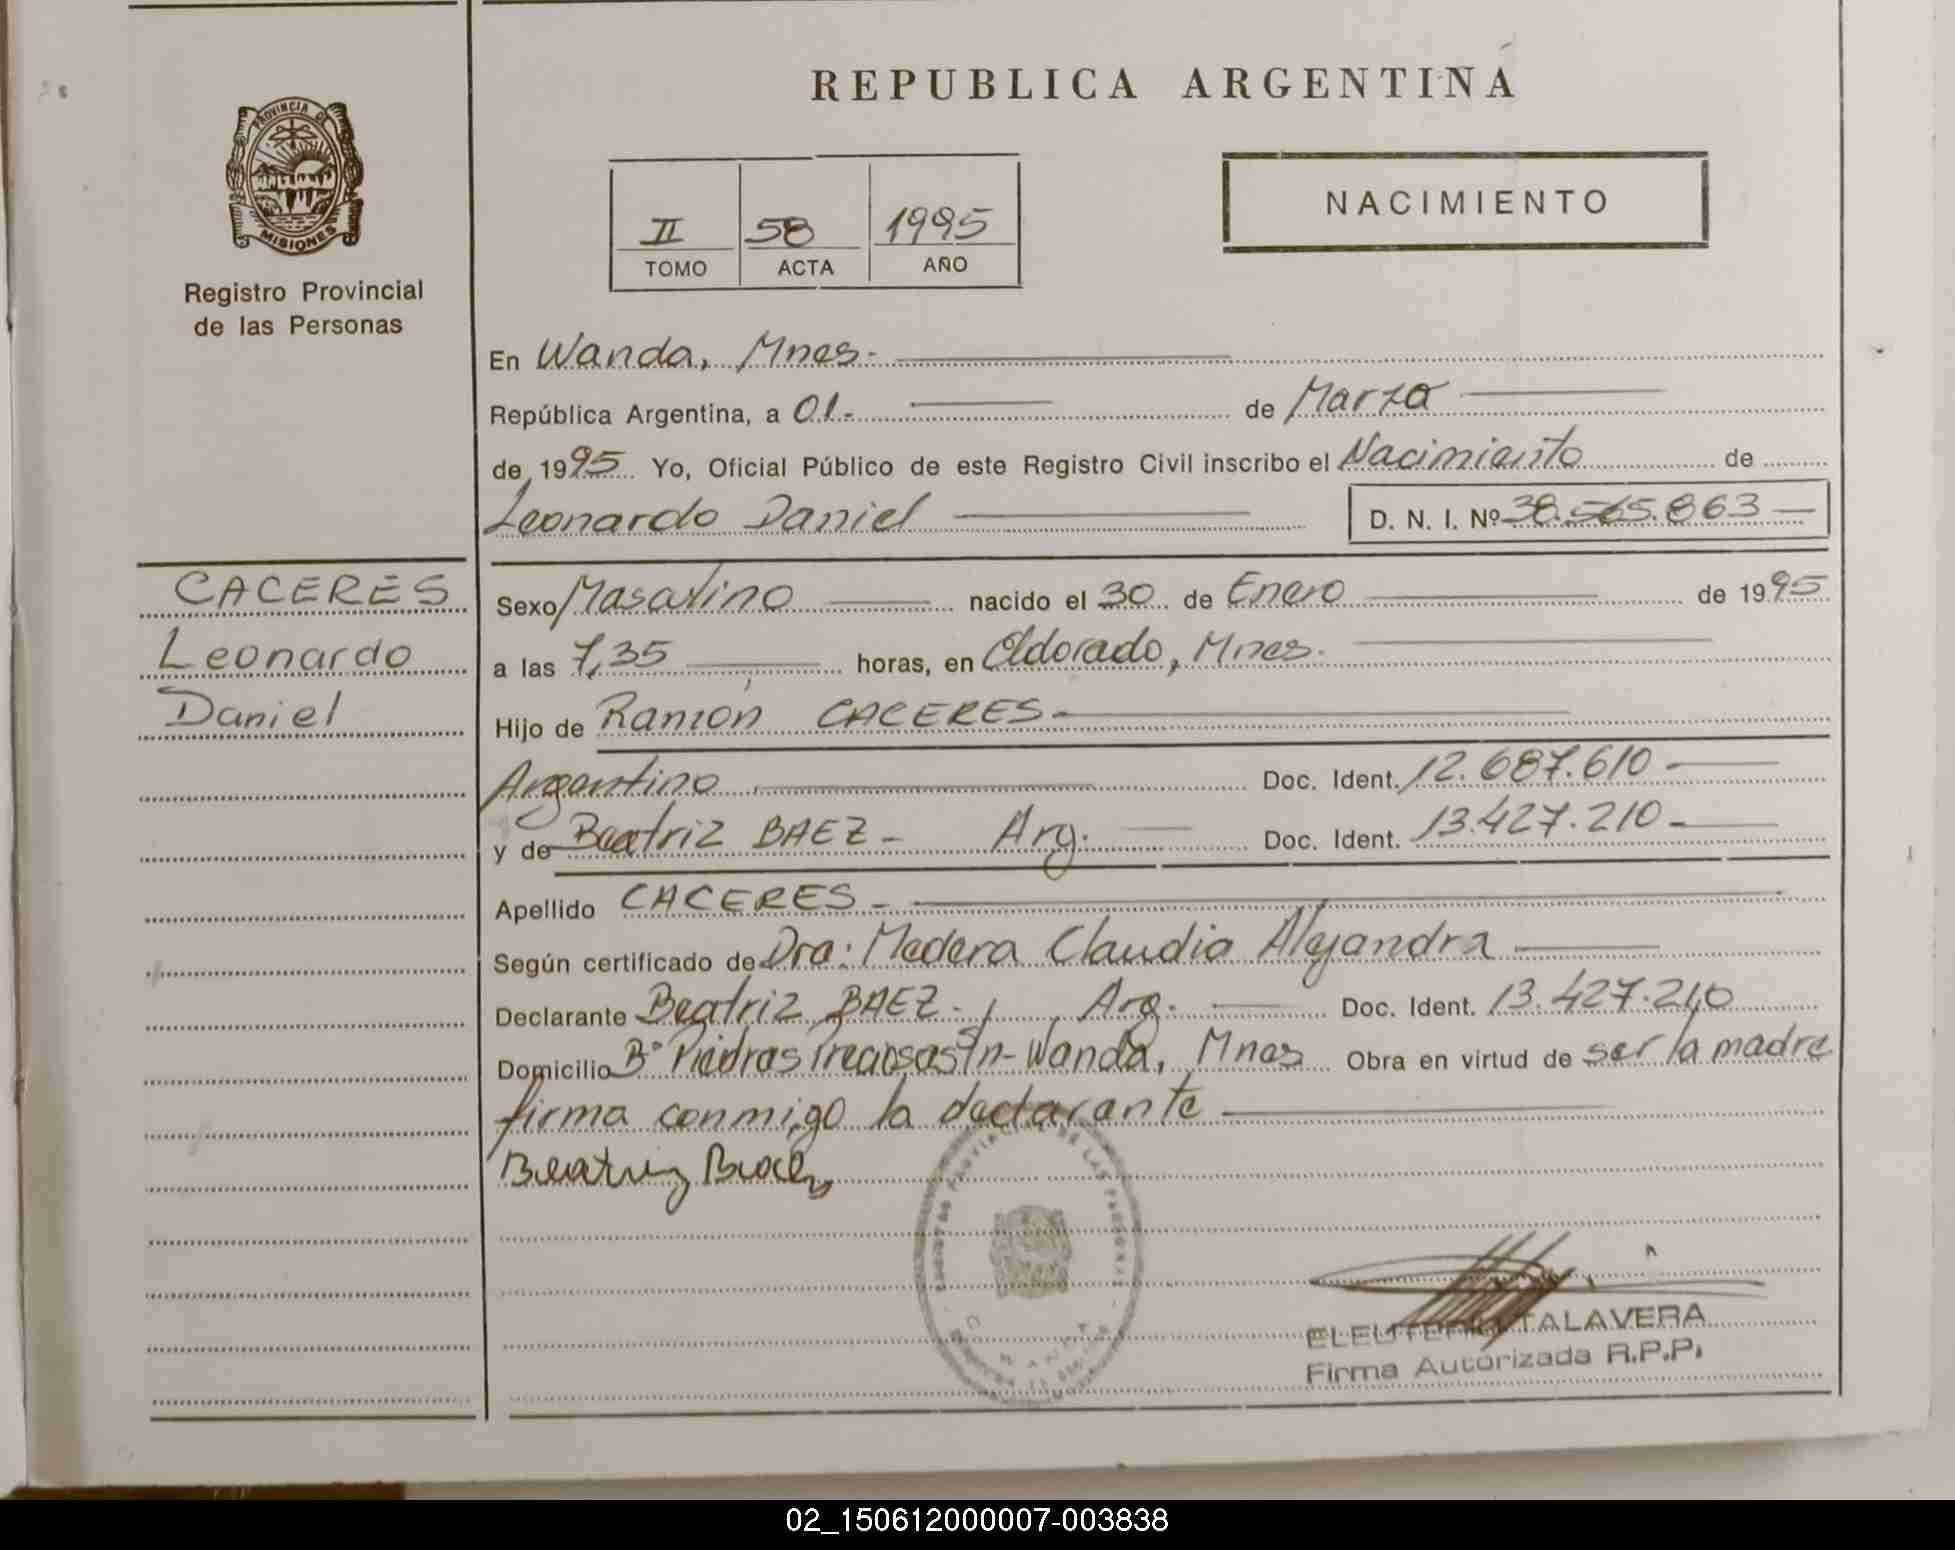 REPUBLICA ARGENTINA
PROVINCIA DE
MISIONES
Registro Provincial
de las Personas
II 58 1995
TOMO ACTA AÑO
NACIMIENTO
En Wanda, Mnes.-
República Argentina, a 01.- de Marzo
de 1995 Yo, Oficial Público de este Registro Civil inscribo el Nacimiento de
Leonardo Daniel D. N. I. Nº 38.565.863
CACERES
Leonardo
Daniel
Sexo Masculino nacido el 30 de Enero de 1995
a las 7,35 horas, en Eldorado, Mnes.
Hijo de Ramón CACERES-
Argentino Doc. Ident. 12.687.610-
y de Beatriz BAEZ- Arg. Doc. Ident. 13.427.210-
Apellido CACERES-
Según certificado de Dra: Medera Claudia Alejandra
Declarante Beatriz BAEZ- Arg. Doc. Ident. 13.427.210
Domicilio Bº Piedras Preciosas S/n-Wanda, Mnes Obra en virtud de ser la madre
firma conmigo la declarante
Beatriz Baez
ELEUTERIO TALAVERA
Firma Autorizada R.P.P.
02_150612000007-003838